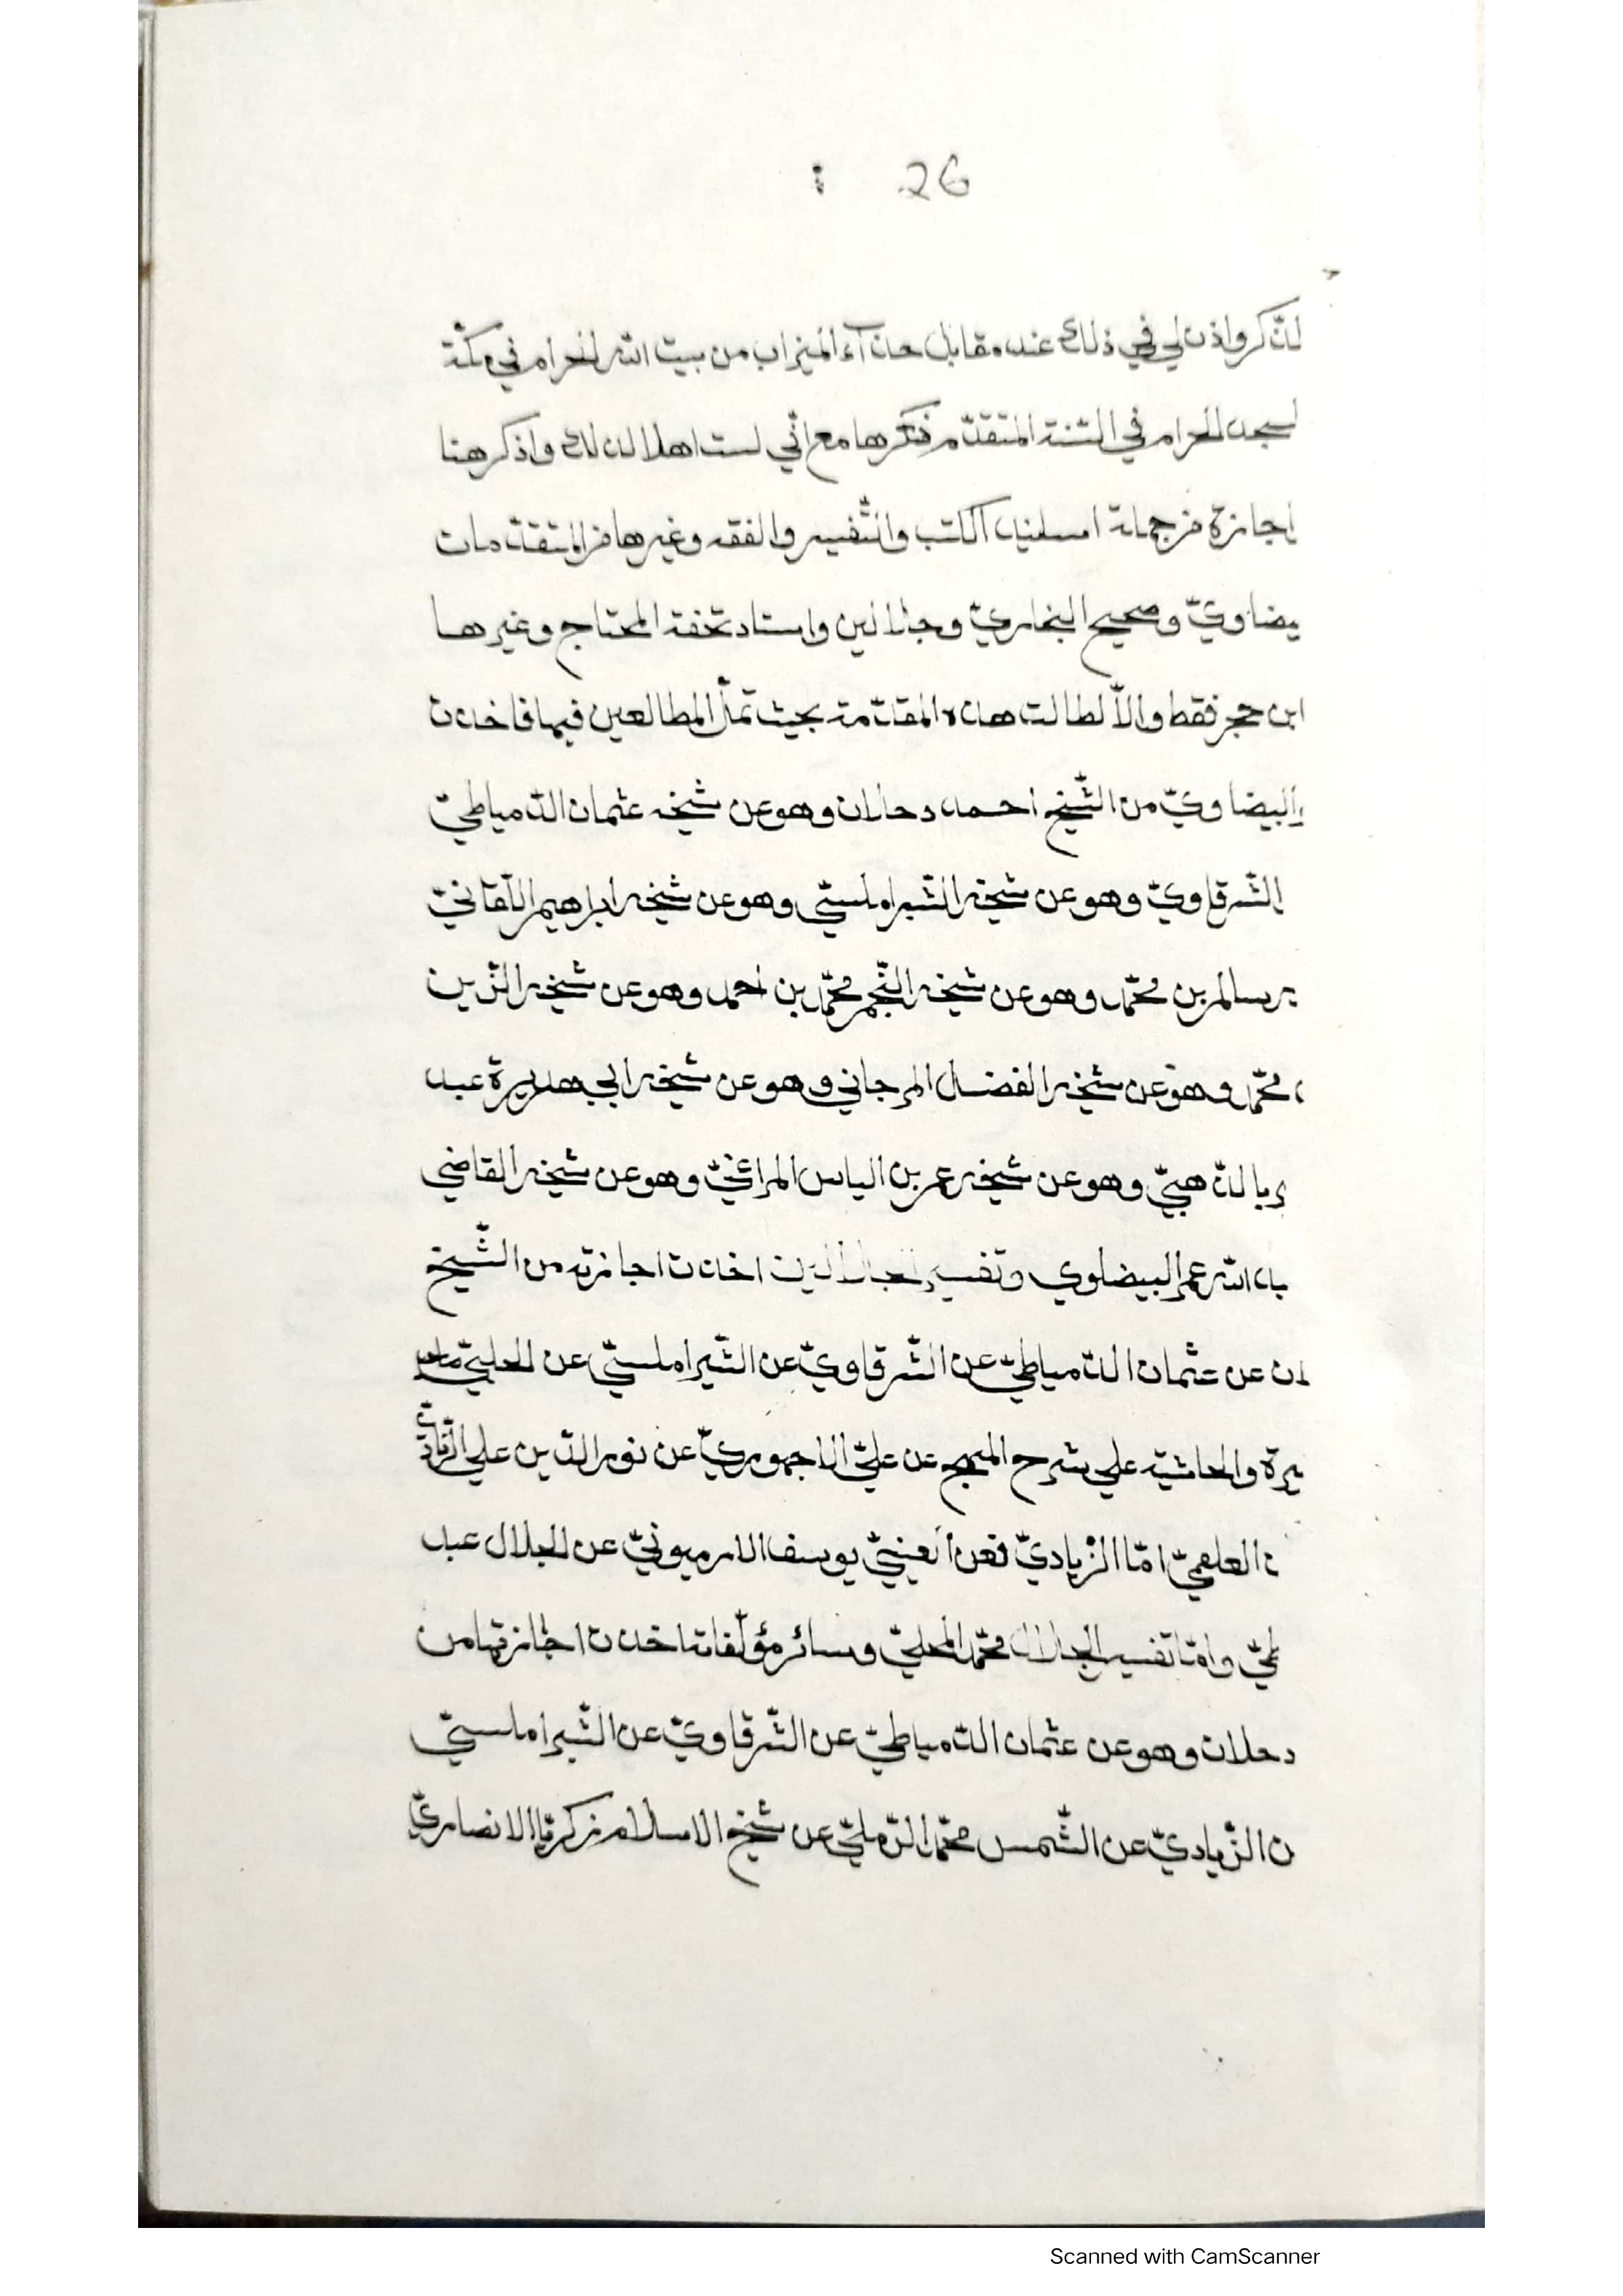 : 26
لذكر واذن لي في ذلك عند مقابل حذآء الميزاب من بيت الله الحرام في مكّة
لسجد الحرام في السّنة المتقدّم ذكرها مع انّي لست اهلا لذلك واذكر هنا
اجازة من جملة اسلنيد الكتب والتّفسير والفقه وغيرها من المتقدّمات
يضاويّ وصحيح البخاريّ وجلالين واستاد تحفة المحتاج وغيرها
ابن حجر فقط والاّ لطالت هذه المقدّمة بحيث تملّ المطالعين فيها فاخذت
البيضاويّ من الشّيخ احمد دحلان وهو عن شيخه عثمان الدّمياطيّ
الشّرقاويّ وهو عن شيخه الشّبراملسيّ وهو عن شيخه ابراهيم اللّقانيّ
سالم بن محمّد وهو عن شيخه النّجم محمّد بن احمد وهو عن شيخه الزّين
محمّد وهو عن شيخه الفضل المرجاني وهو عن شيخه ابي هديرة عبد
بالذّهبيّ وهو عن شيخه عمر بن الياس المراغيّ وهو عن شيخه القاضي
الله عمر البيضلوي وتفسير الجلالين اخذت اجازته من الشّيخ
ن عن عثمان الدّمياطيّ عن الشّرقاويّ عن الشّبراملسيّ عن الحلبيّ
يرة والحاشية علي شرح المنهج عن عليّ الاجهوريّ عن نور الدّين علي
العلقميّ امّا الزّياديّ فعن يوسف الارميونيّ عن الجلال عبد
وامّا تفسير الجلال محمّد المحليّ وسائر مؤلّفاته اخذت اجازتها من
دحلان وهو عن عثمان الدّمياطيّ عن الشّرقاويّ عن الشّبراملسيّ
ن الزّياديّ عن الشّمس محمّد الرّمليّ عن شيخ الاسلام زكريّا الانصاريّ
Scanned with CamScanner